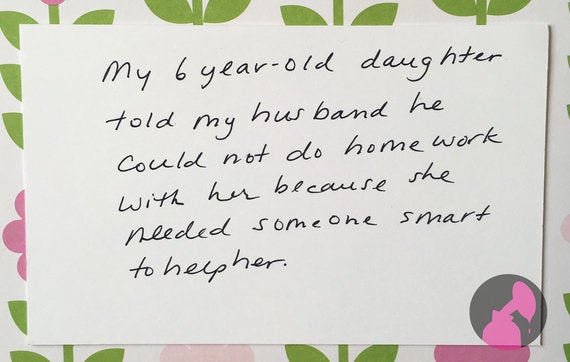 My 6 year-old daughter
told my husband he
could not do homework
with her because she
needed someone smart
to help her.